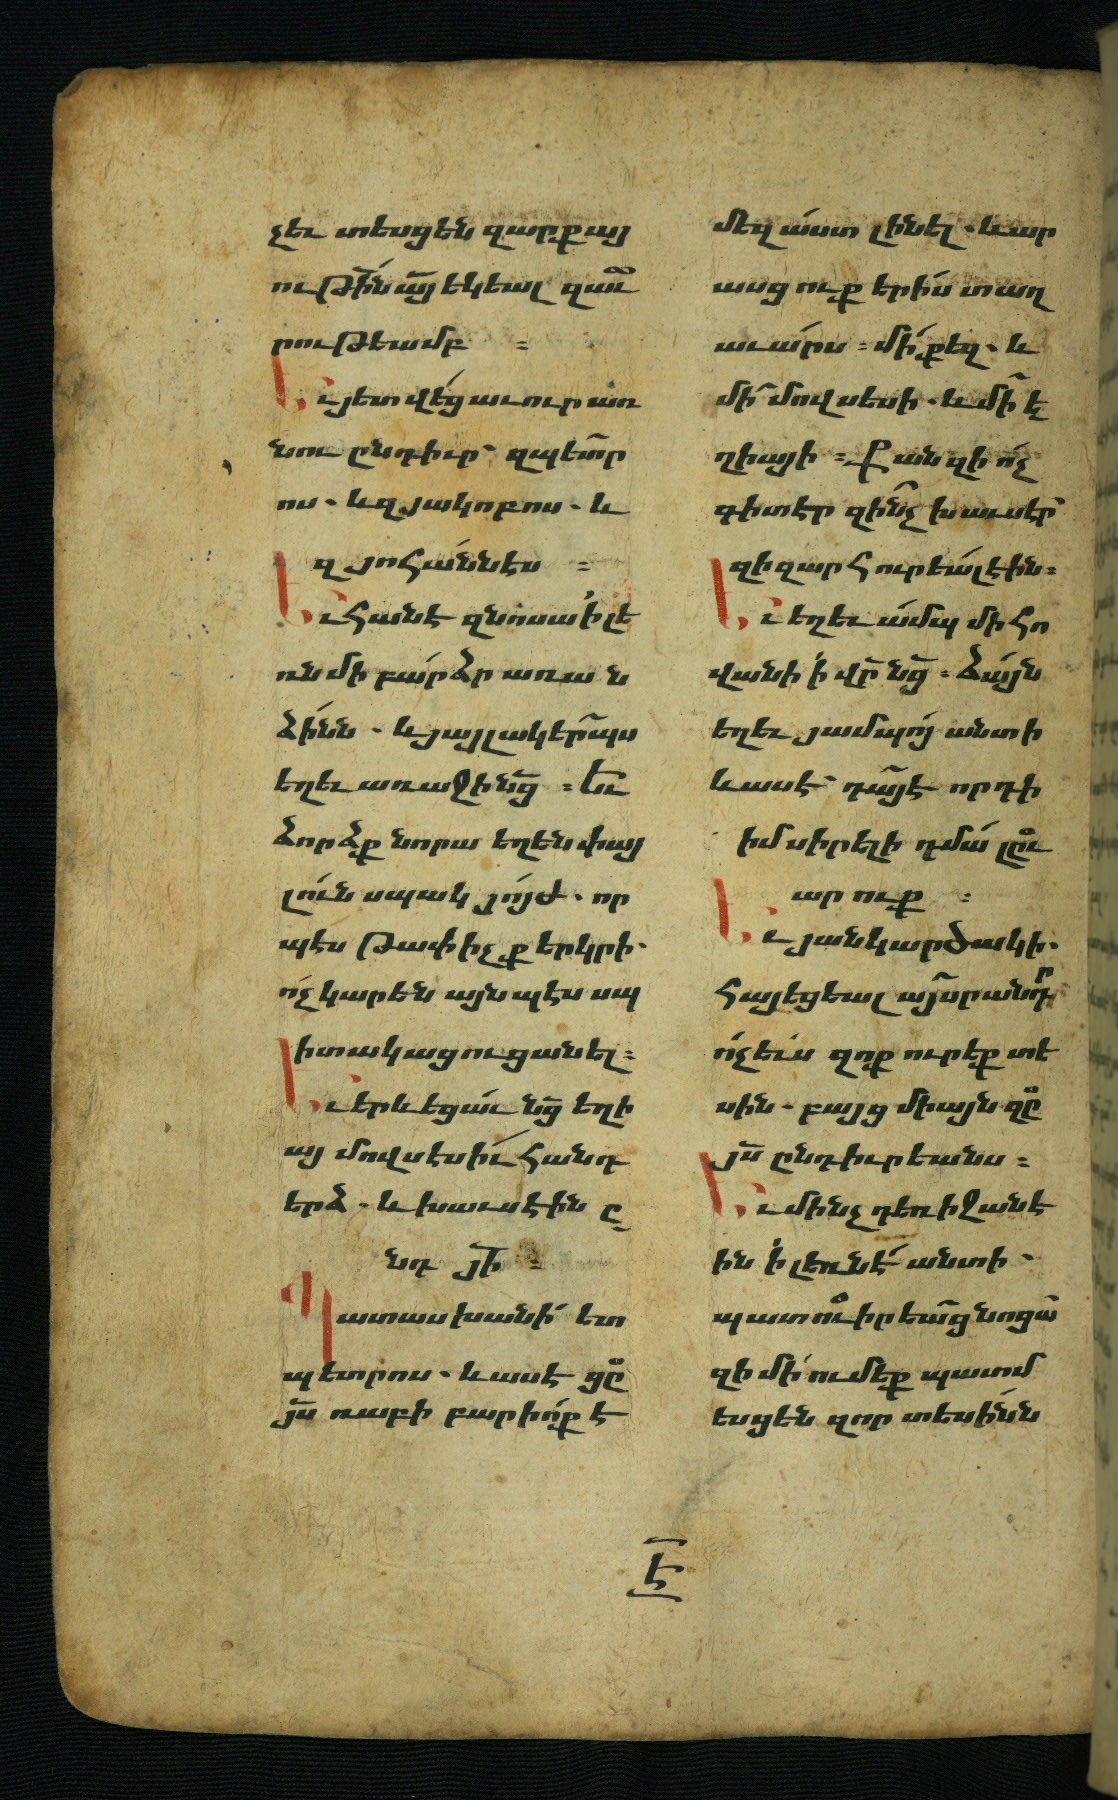 չեւ տեսցեն զարքայ
ութի՛ն ա՟յ եկեալ զաւ՟
րութեամբ ։
Եւ յետ վե՛ց աւուր առ
նու ընդիւր՝ զպետ՟ր
ոս · և զյակոբոս · և
զյոհա՛ննէս ։
Եւ հանէ զնոսա ՚ի լե
ռն մի բա՛րձր առան
ձի՛նն · և յայլակեր՟պս
եղեւ առաջի նց՟ ։ Եւ
ձորձք նորա եղեն փայ
լո՛ւն սպակ յո՛յժ · որ
պէս թափիչք երկրի ·
ո՛չ կարեն այնպէս սպ
իտակացուցանել ։
Եւ երևեցա՛ւ նց՟ եղի
այ մովսէսի՛ւ հանդ
երձ · և խաւսէին ը
նդ յի՟ ։
Պատասխանի՛ ետ
պետրոս · և ասէ ցը՟
յս՟ ռաբի բարիո՛ք է
մեզ ա՛ստ լինել · և ար
ասցուք երի՛ս տաղ
աւա՛րս ։ մի՛ քեզ · և
մի՛ մովսեսի · և մի՛ է
ղիայի ։ Քանզի ո՛չ
գիտէր զի՛նչ խաւսէր՟
զի զարհուրեա՛լ էին ։
Եւ եղեւ ա՛մպ մի հո
վանի ՚ի վր՟ նց՟ ։ ձա՛յն
եղեւ յամպո՛յ անտի
և ասէ՝ դա՟յէ որդի
իմ սիրելի դմա՛ լըւ՟
արուք ։
Եւ յանկարծակի ·
հայեցեալ այ՟սրանդր
ո՛չ եւս զոք ուրեք տե
սին · բայց միայն զը՟
յս՟ ընդիւրեանս ։
Եւ մինչդեռ իջանէ
ին ՚ի լեռնէ՛ անտի ·
պատուիրեա՟ց նոցա՟
զի մի՛ ումեք պատմ
եսցեն զոր տեսի՛նն
Է